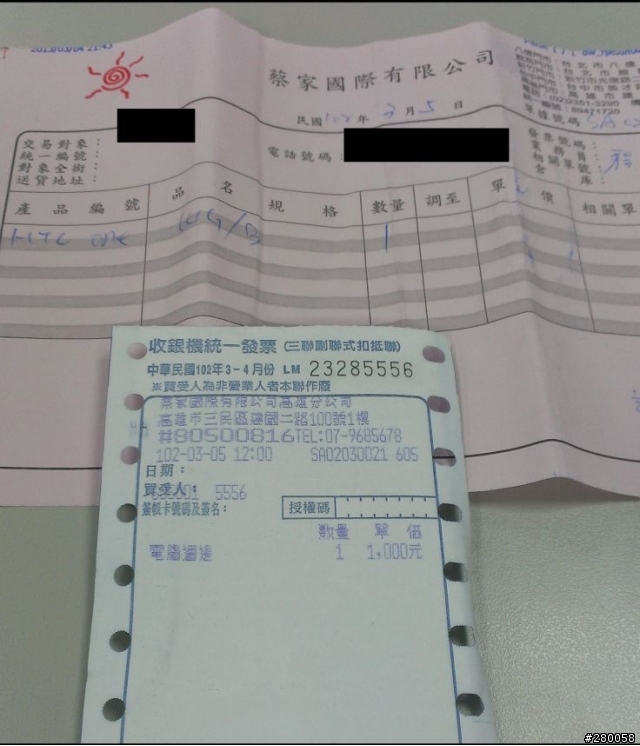 蔡家國際有限公司
民國102年3月5日
交易對象：
統一編號：
對象全銜：
送貨地址：
電話號碼：
發票號碼：
業務員：
相關單號：
倉庫：
產品編號 品名 規格 數量 調至 單價 相關單
HTC 1
收銀機統一發票（三聯副聯式扣抵聯）
中華民國102年3-4月份 LM 23285556
※買受人為非營業人者本聯作廢
蔡家國際有限公司高雄分公司
高雄市三民區建國二路100號1樓
#80500816TEL:07-9685678
102-03-05 12:00 SA02030021 605
日期：
買受人：
5556
簽帳卡號碼及簽名： 授權碼
數量 單價
電腦週邊 1 1,000元
#280058